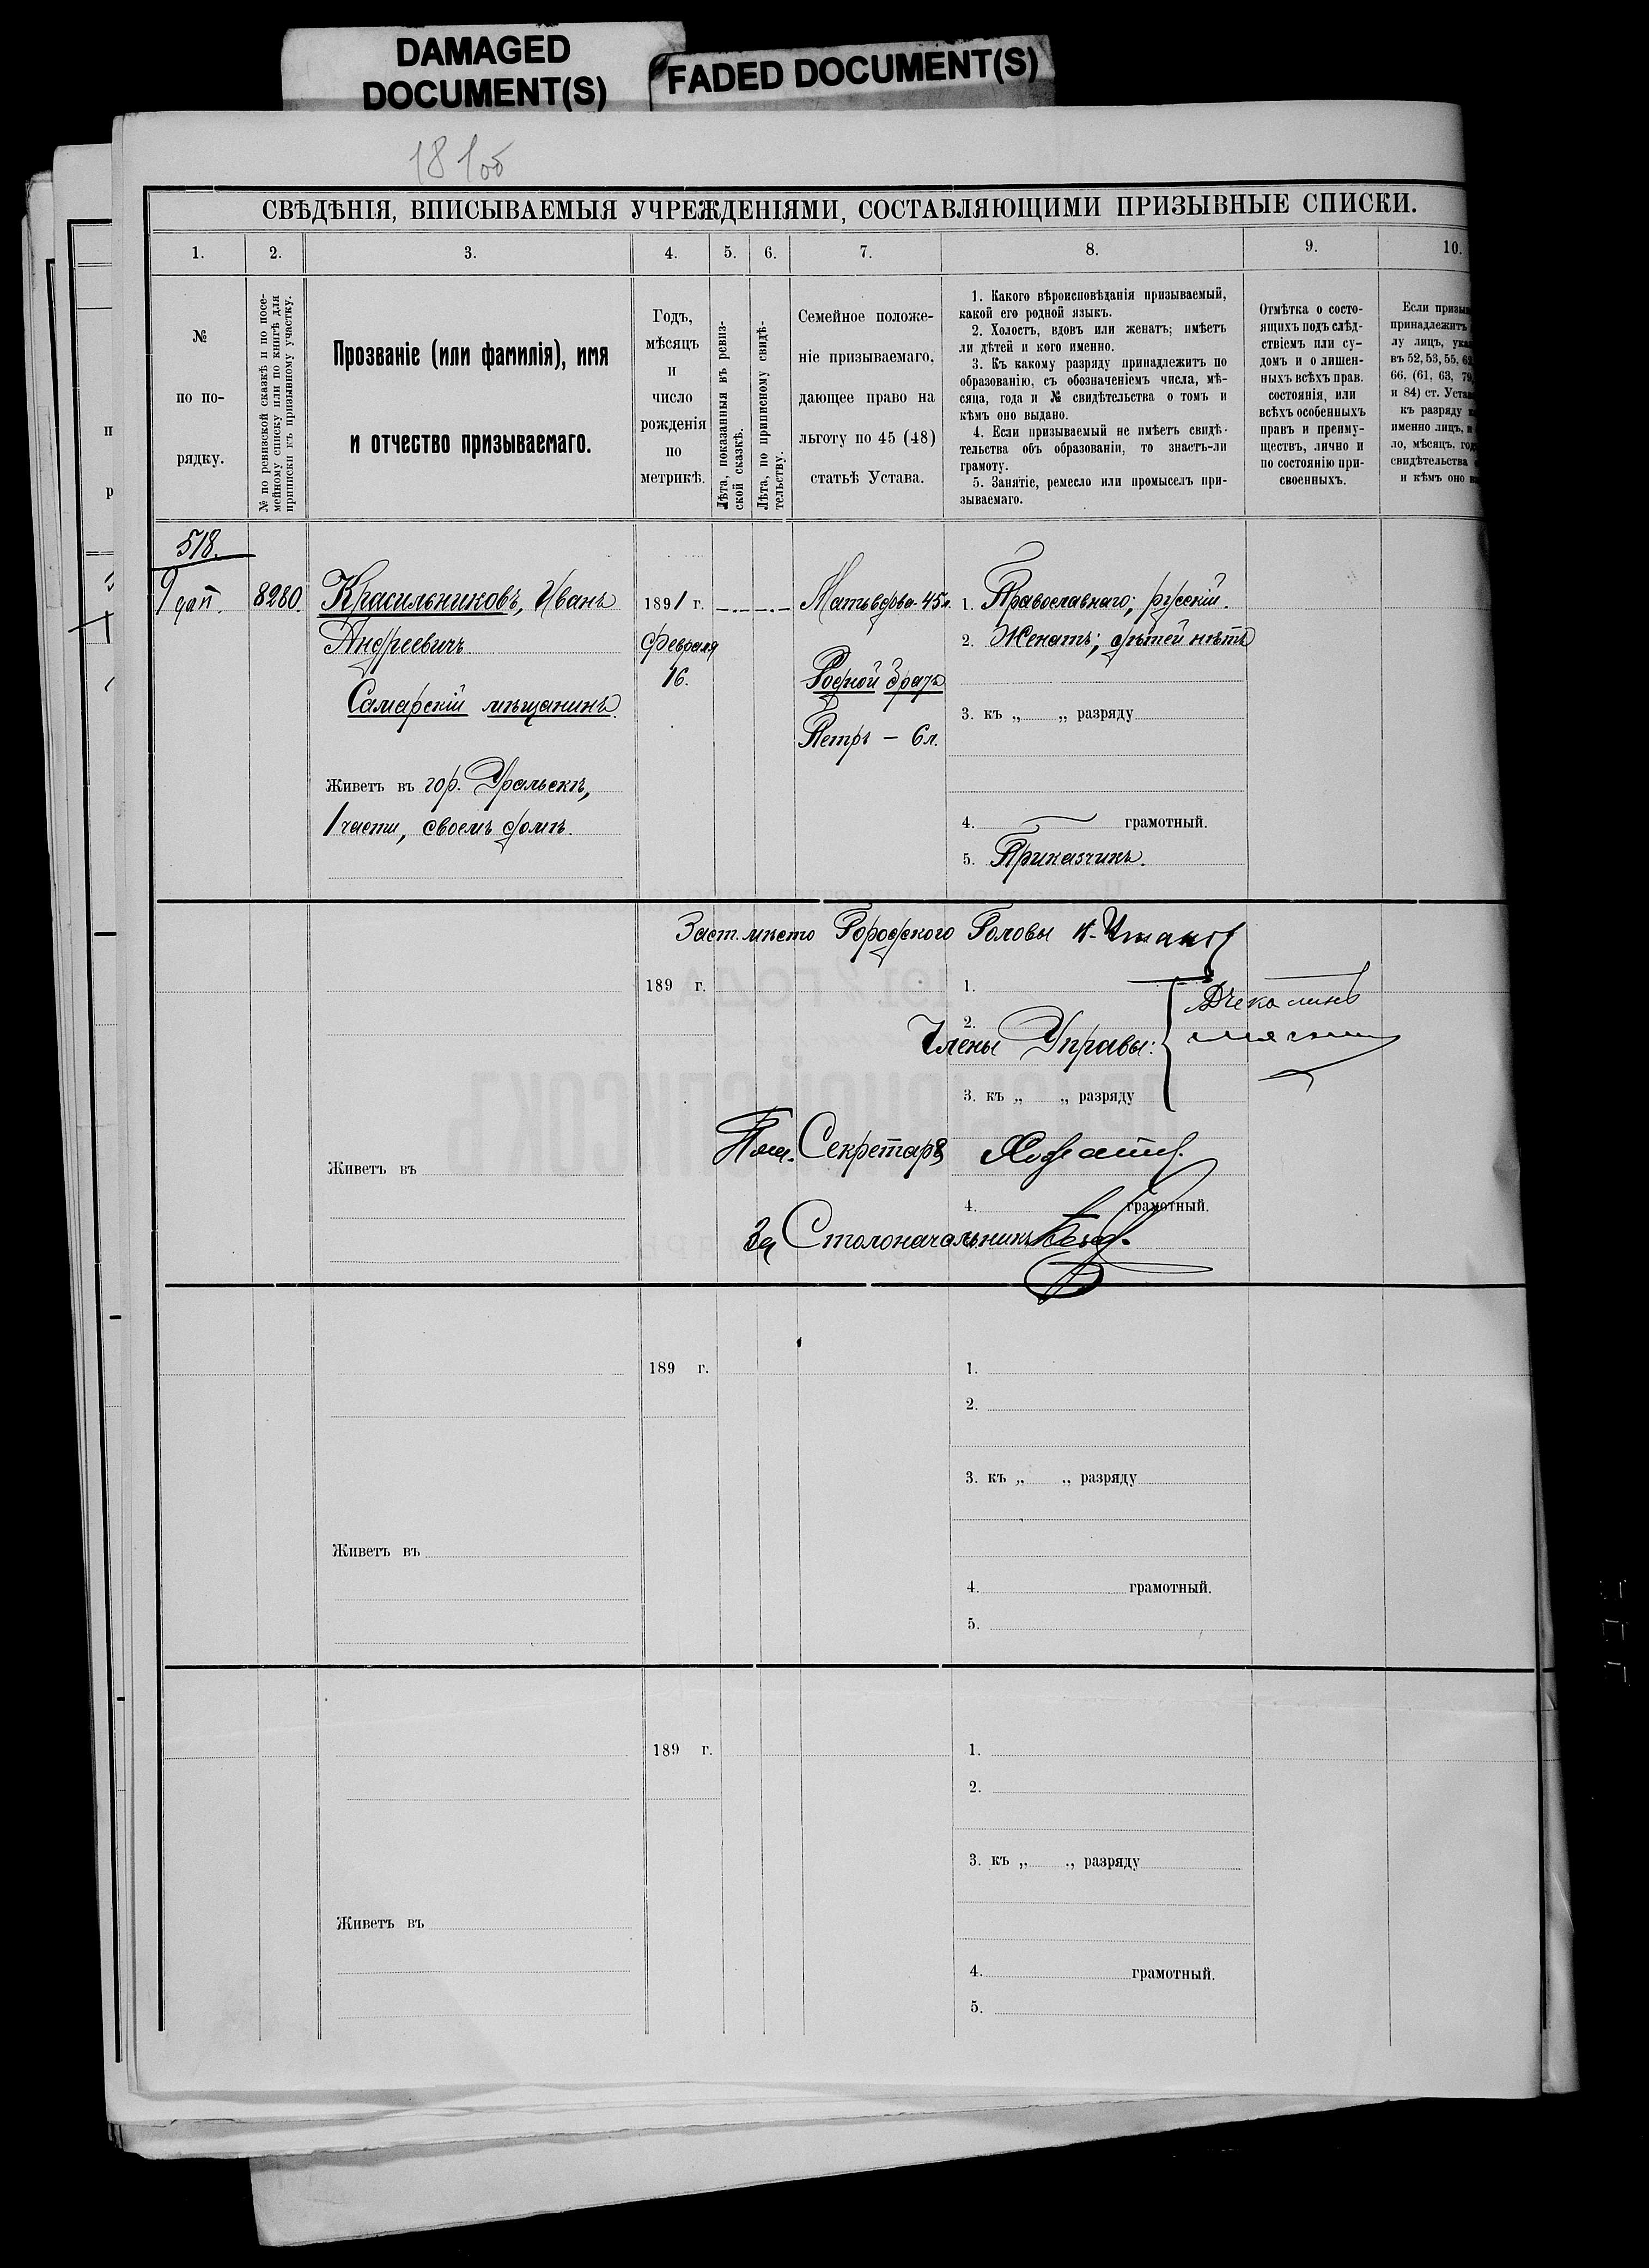 DAMAGED
DOCUMENT(S)
FADED DOCUMENT(S)
18 1об
СВѢДѢНІЯ, ВПИСЫВАЕМЫЯ УЧРЕЖДЕНІЯМИ, СОСТАВЛЯЮЩИМИ ПРИЗЫВНЫЕ СПИСКИ.
1. 2. 3. 4. 5. 6. 7. 8. 9. 10.
№
по по-
рядку.
№ по ревизской сказкѣ и по посе-
мейному списку или по книгѣ для
приписки къ призывному участку.
Прозваніе (или фамилія), имя
и отчество призываемаго.
Годъ,
мѣсяцъ
и
число
рожденія
по
метрикѣ.
Лѣта, показанныя въ ревиз-
ской сказкѣ.
Лѣта, по приписному свидѣ-
тельству.
Семейное положе-
ніе призываемаго,
дающее право на
льготу по 45 (48)
статьѣ Устава.
1. Какого вѣроисповѣданія призываемый,
какой его родной языкъ.
2. Холостъ, вдовъ или женатъ; имѣетъ
ли дѣтей и кого именно.
3. Къ какому разряду принадлежитъ по
образованію, съ обозначеніемъ числа, мѣ-
сяца, года и № свидѣтельства о томъ и
кѣмъ оно выдано.
4. Если призываемый не имѣетъ свидѣ-
тельства объ образованіи, то знаетъ-ли
грамоту.
5. Занятіе, ремесло или промыселъ при-
зываемаго.
Отмѣтка о состо-
ящихъ подъ слѣд-
ствіемъ или су-
домъ и о лишен-
ныхъ всѣхъ прав.
состоянія, или
всѣхъ особенныхъ
правъ и преиму-
ществъ, лично и
по состоянію при-
своенныхъ.
Если призы
принадлежитъ
лу лицъ, ука
въ 52, 53, 55, 62
66, (61, 63, 79
и 84) ст. Уста
къ разряду
именно лицъ, и
ло, мѣсяцъ, год
свидѣтельства
и кѣмъ оно
518.
9 доп.
8280.
Красильниковъ, Иванъ
Андреевичъ
Самарскій мѣщанинъ.
Живетъ въ гор. Уральскѣ,
1 части, своемъ домѣ.
1891 г.
Февраля
16.
Мать вдова 45л.
Родной братъ
Петръ — 6 л.
1. Православнаго; русскій.
2. Женатъ; дѣтей нѣтъ
3. къ „ „ разряду
4. грамотный.
5. Приказчикъ.
Заст. мѣсто Городского Головы
189 г.
1.
2.
Члены Управы:
3. къ „ „ разряду
Пом. Секретаря
Живетъ въ
4. грамотный.
За Столоначальника
189 г.
1.
2.
3. къ „ „ разряду
Живетъ въ
4. грамотный.
5.
189 г.
1.
2.
3. къ „ „ разряду
Живетъ въ
4. грамотный.
5.